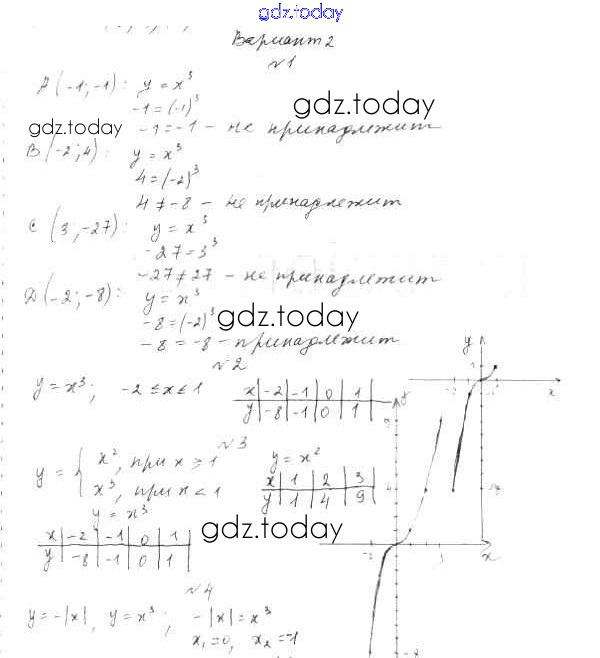 gdz.today
Вариант 2
№1
A(-1;-1): y = x³
-1 = (-1)³
gdz.today
gdz.today
-1 = -1 - не принадлежит
B(-2;4): y = x³
4 = (-2)³
4 ≠ -8 - не принадлежит
C(3;-27): y = x³
-27 = 3³
-27 ≠ 27 - не принадлежит
D(-2;-8): y = x³
-8 = (-2)³
gdz.today
-8 = -8 - принадлежит
№2
y = x³; -2 ≤ x ≤ 1
x | -2 | -1 | 0 | 1
y | -8 | -1 | 0 | 1
№3
y = { x², при x ≥ 1
x³, при x < 1
y = x²
x | 1 | 2 | 3
y | 1 | 4 | 9
y = x³
x | -2 | -1 | 0 | 1
y | -8 | -1 | 0 | 1
gdz.today
y
x
9
4
-2
3
x
-8
№4
y = -|x|, y = x³; -|x| = x³
x₁ = 0, x₂ = -1